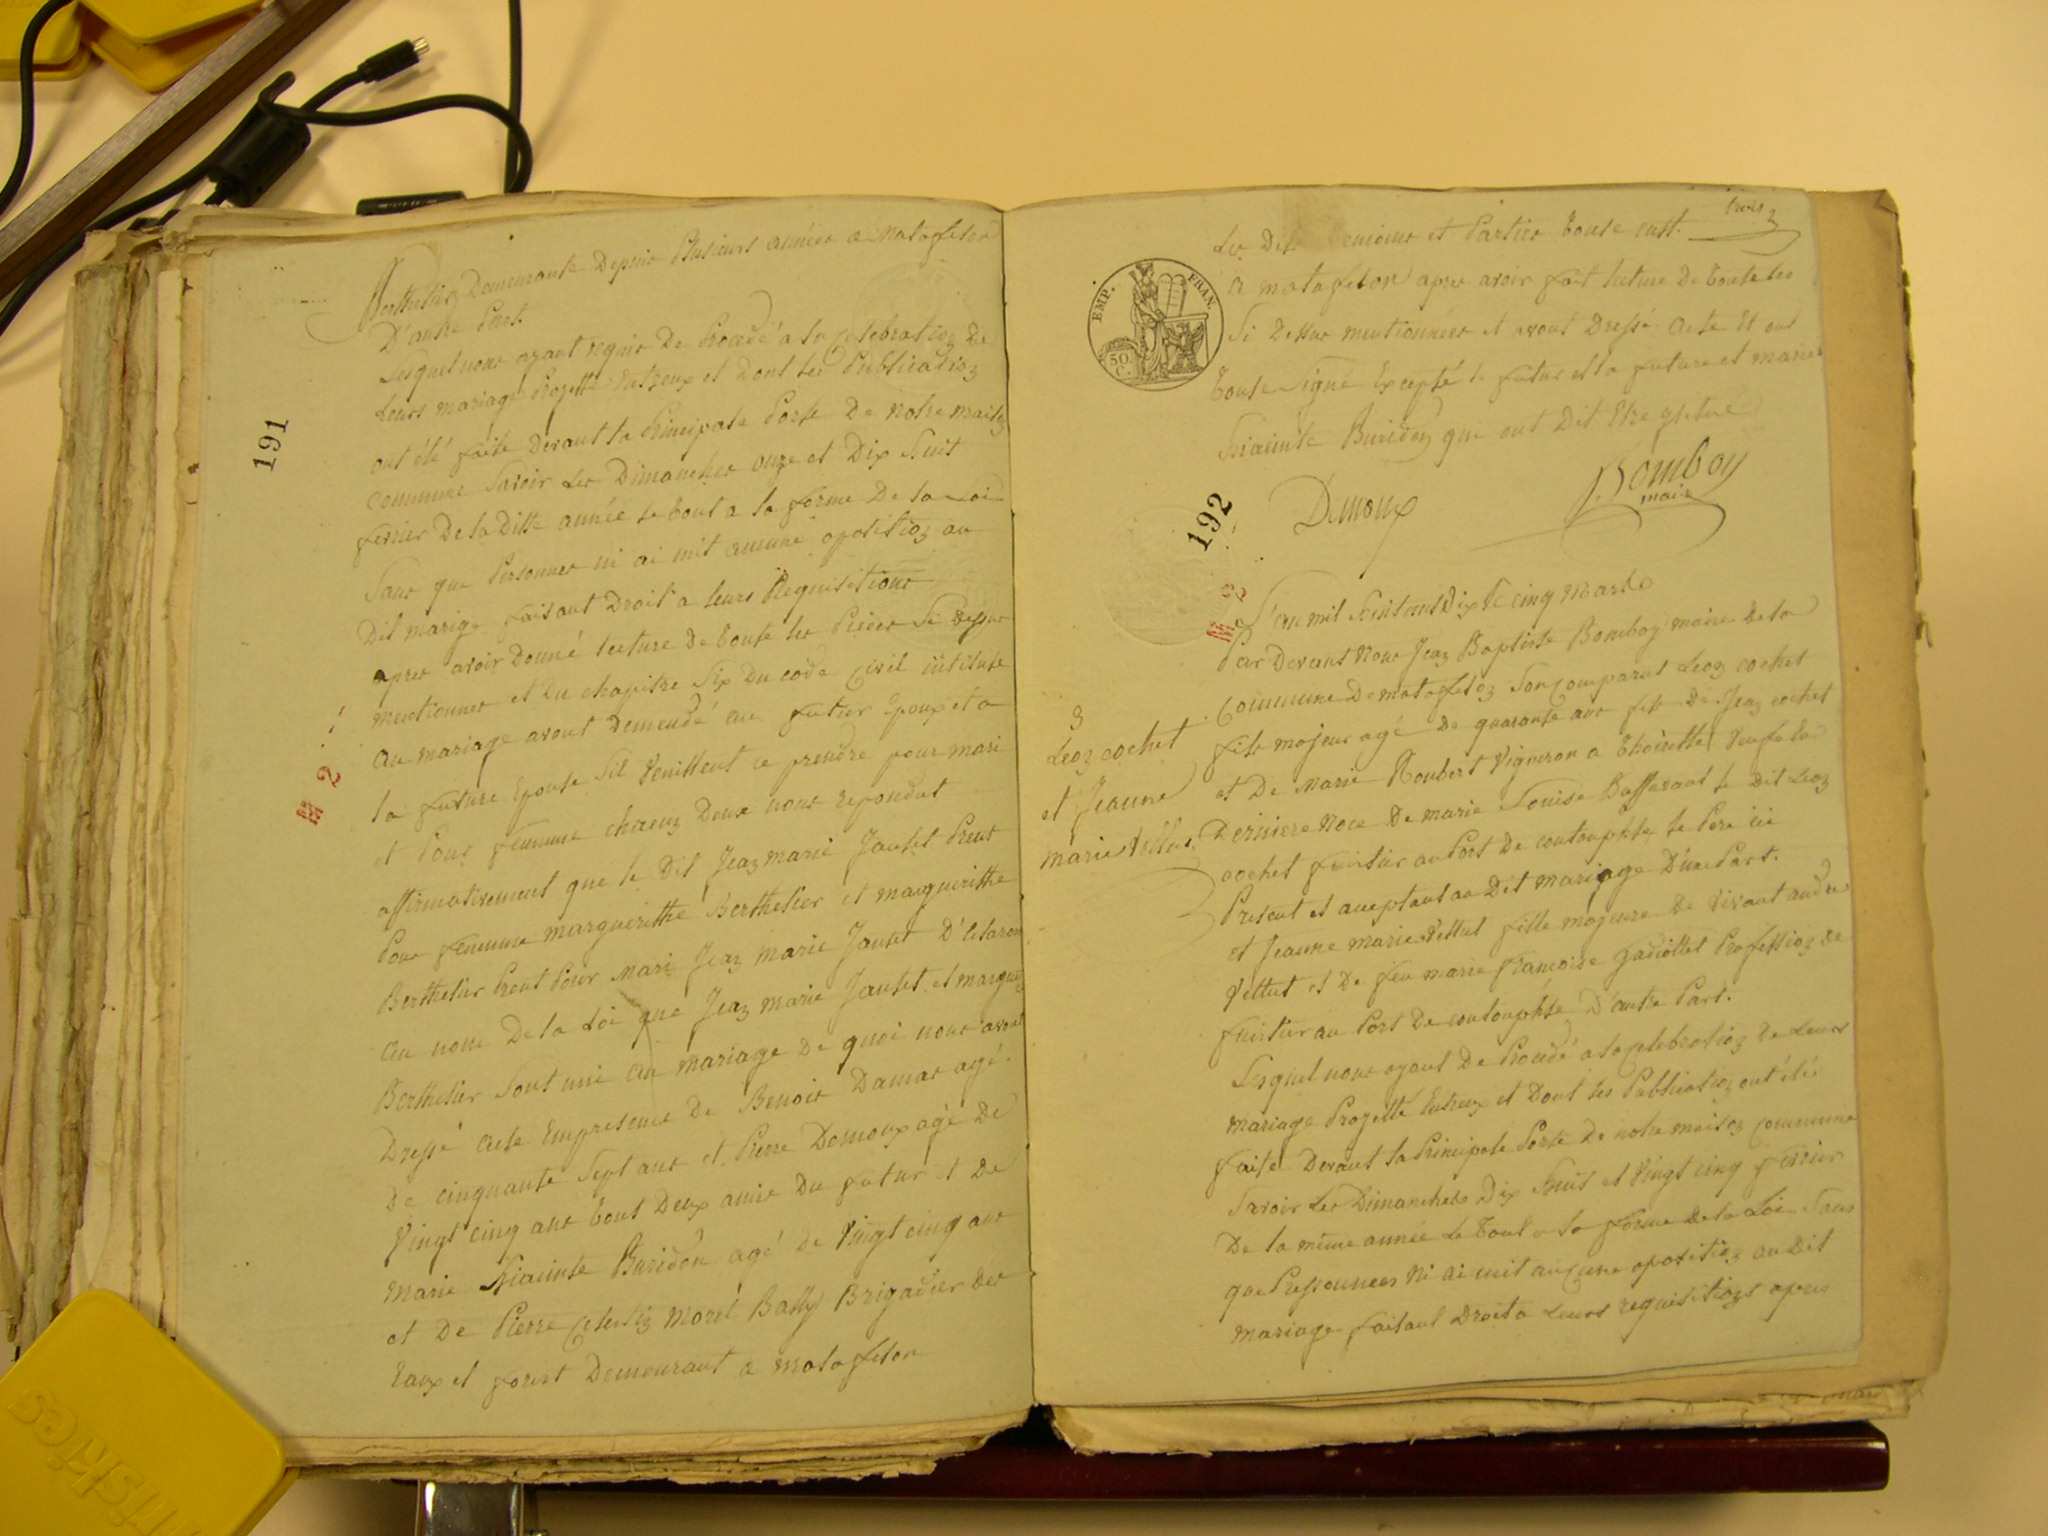 191
M 2
Berthelier Demeurante Depuis Plusieurs années a Matafelon
D'autre Part.
Lesquel nous ayant requis De Procedé a la Celebration de
Leurs mariage Projetté Entreux et Dont les Publication
ont été faite Devant la Principale Porte De notre maison
commune Savoir Les Dimanches onze et Dix huit
fevrier De la Ditte année le tout a la forme De la Loi
Sans que Personnes ni ai mit aucune opositions au
Dit mariage faisant Droit a leurs Requisitions
apres avoir Donné lecture de toute les Pieces Si dessus
mentionner et du chapitre Six Du code Civil intitule
au mariage avont demendé au futur Epoux et a
la future Epouse Sil veuillent ce prendre pour mari
et Pour femme chacun Deux nous repondut
affirmativement que le Dit Jean marie Jantet Prent
Pour femme margueritte Berthelier et margueritte
Berthelier Prent Pour Mari Jean marie Jantet D'Clarons
au nom De la Loi que Jean marie Jantet et margueri
Berthelier Sont uni au mariage de quoi nous avont
Dressé acte Empresence de Benoit Damas agé
De cinquante Sept ans et Pierre Demoux agé De
Vingt cinq ans tout Deux amis Du futur et De
marie hiacinte Buridon agé de Vingt cinq ans
et De Pierre Celestin Morel Bailly Brigadier des
Eaux et forest Demeurant a matafelon
trois
Les Dits temoins et Parties toute
EMP. FRAN.
50. C.
a matafelon apres avoir fait lecture De toute les
Si Dessus mentionnées et avont Dressé acte Et ont
toute Signé Excepté le futur et la future et marie
hiacinte Buridon que ont Dit Etre
Demoux
Bomboy
maire
192
M 3
3
Leon cochet
et Jeanne
marie Vellut
L'an mil huit cent Dix le cinq Mars
Par Devant Nous Jean Baptiste Bomboy maire de la
Commune De matafelon Son Comparut Leon cochet
fils majeur agé De quarante ans fils De Jean cochet
et De Marie Roubert Vigneron a thoirette Veuf de la
Derniere Noce De marie Louise Bafferant le Dit Leon
cochet fruitier au Port De contouphle le Pere ici
Present et aceptant au Dit mariage D'une Part.
et Jeanne marie Vellut fille majeure De Vivant andre
Vellut et De feu marie francoise gadiollet Profession de
fruitier au Port De contouphle D'autre Part.
Lesquel nous ayant De Procedé a la Celebration De Leurs
mariage Projetté Entreux et Dont les Publication ont été
faite Devant la Principale Porte De notre maison Commune
Savoir Les Dimanches Dix huit et Vingt cinq fevrier
De la même année Le Tout a la forme De la Loi Sans
que Pressonnees Ni ai mit aucune oposition au Dit
mariage faisant Droit a Leurs requisitions apres